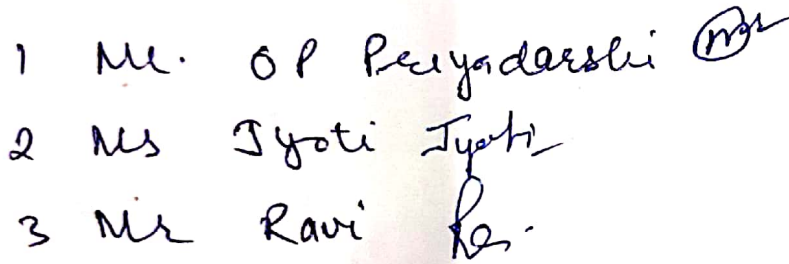 1 Mr. OP Priyadarshi
2 Ms Jyoti Jyoti
3 Mr Ravi